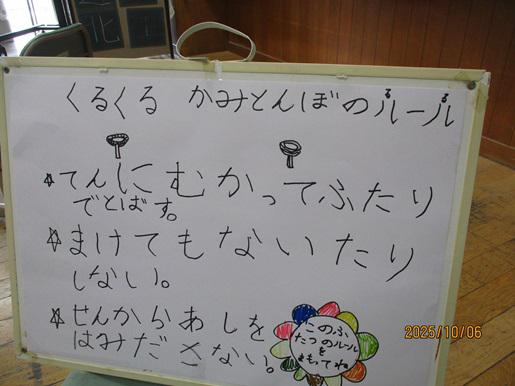 くるくる かみとんぼのルール
るる
☆てんにむかってふたり
でとばす。
☆まけてもないたり
しない。
☆せんからあしを
はみださない。
このふ
たつのルール
を
まもってね
2025/10/06